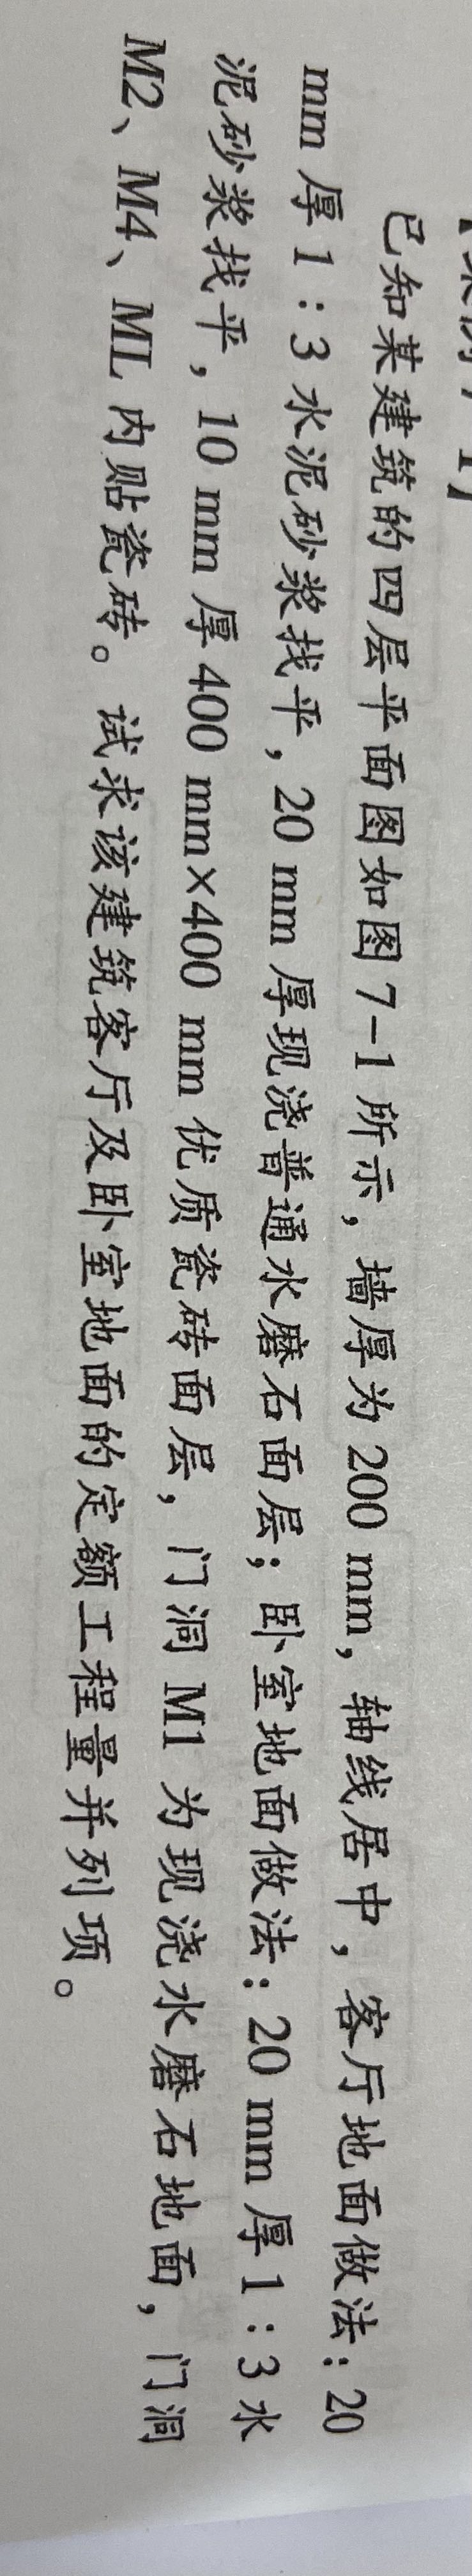 已知某建筑的四层平面图如图7-1所示，墙厚为200 mm，轴线居中，客厅地面做法：20
mm厚1：3水泥砂浆找平，20 mm厚现浇普通水磨石面层；卧室地面做法：20 mm厚1：3水
泥砂浆找平，10 mm厚400 mm×400 mm优质瓷砖面层，门洞M1为现浇水磨石地面，门洞
M2、M4、ML内贴瓷砖。试求该建筑客厅及卧室地面的定额工程量并列项。